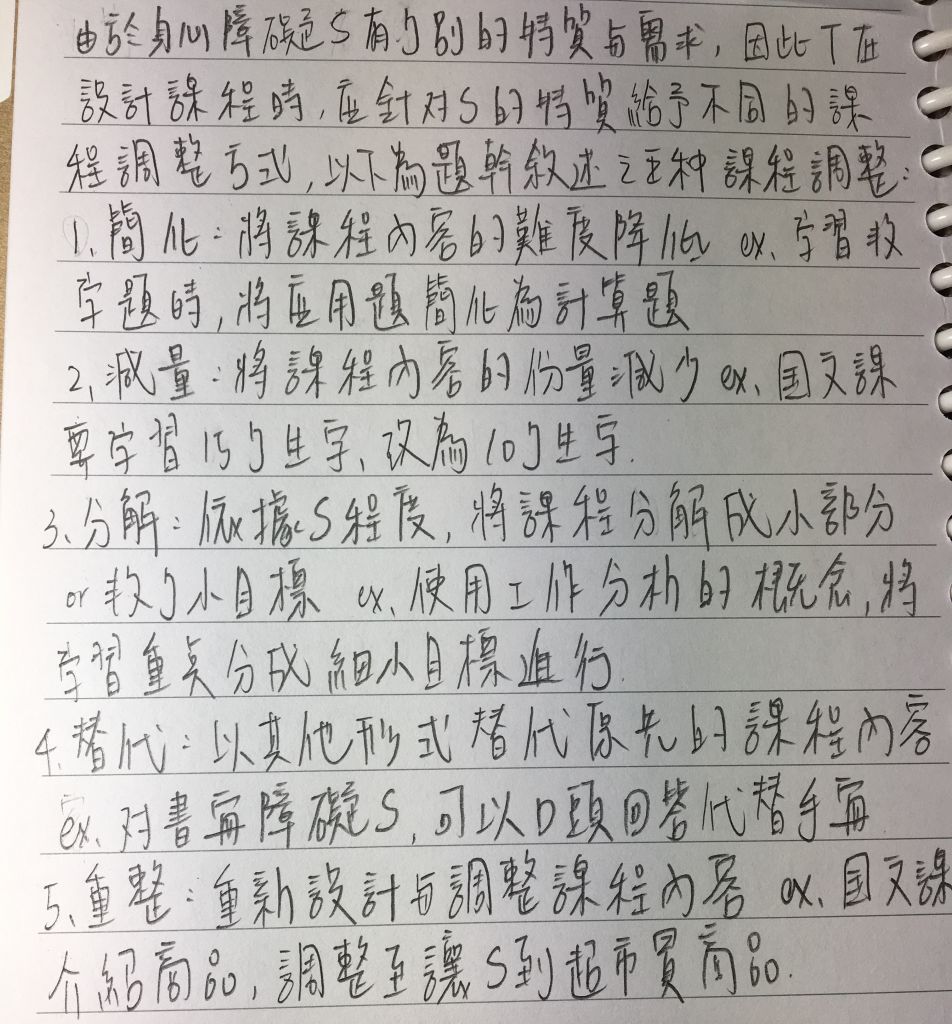 由於身心障礙S有个別的特質与需求，因此T在
設計課程時，应針对S的特質給予不同的課
程調整方式，以下為題幹敘述之五种課程調整：
1、簡化：將課程內容的難度降低 ex、学習数
学題時，將应用題簡化為計算題
2、減量：將課程內容的份量減少 ex、国文課
要学習15个生字、改為10个生字.
3、分解：依據S程度，將課程分解成小部分
or 数个小目標 ex、使用工作分析的概念，將
学習重点分成細小目標進行.
4、替代：以其他形式替代原先的課程內容
ex、对書写障礙S，可以口頭回答代替手写
5、重整：重新設計与調整課程內容 ex、国文課
介紹商品，調整至讓S到超市買商品.